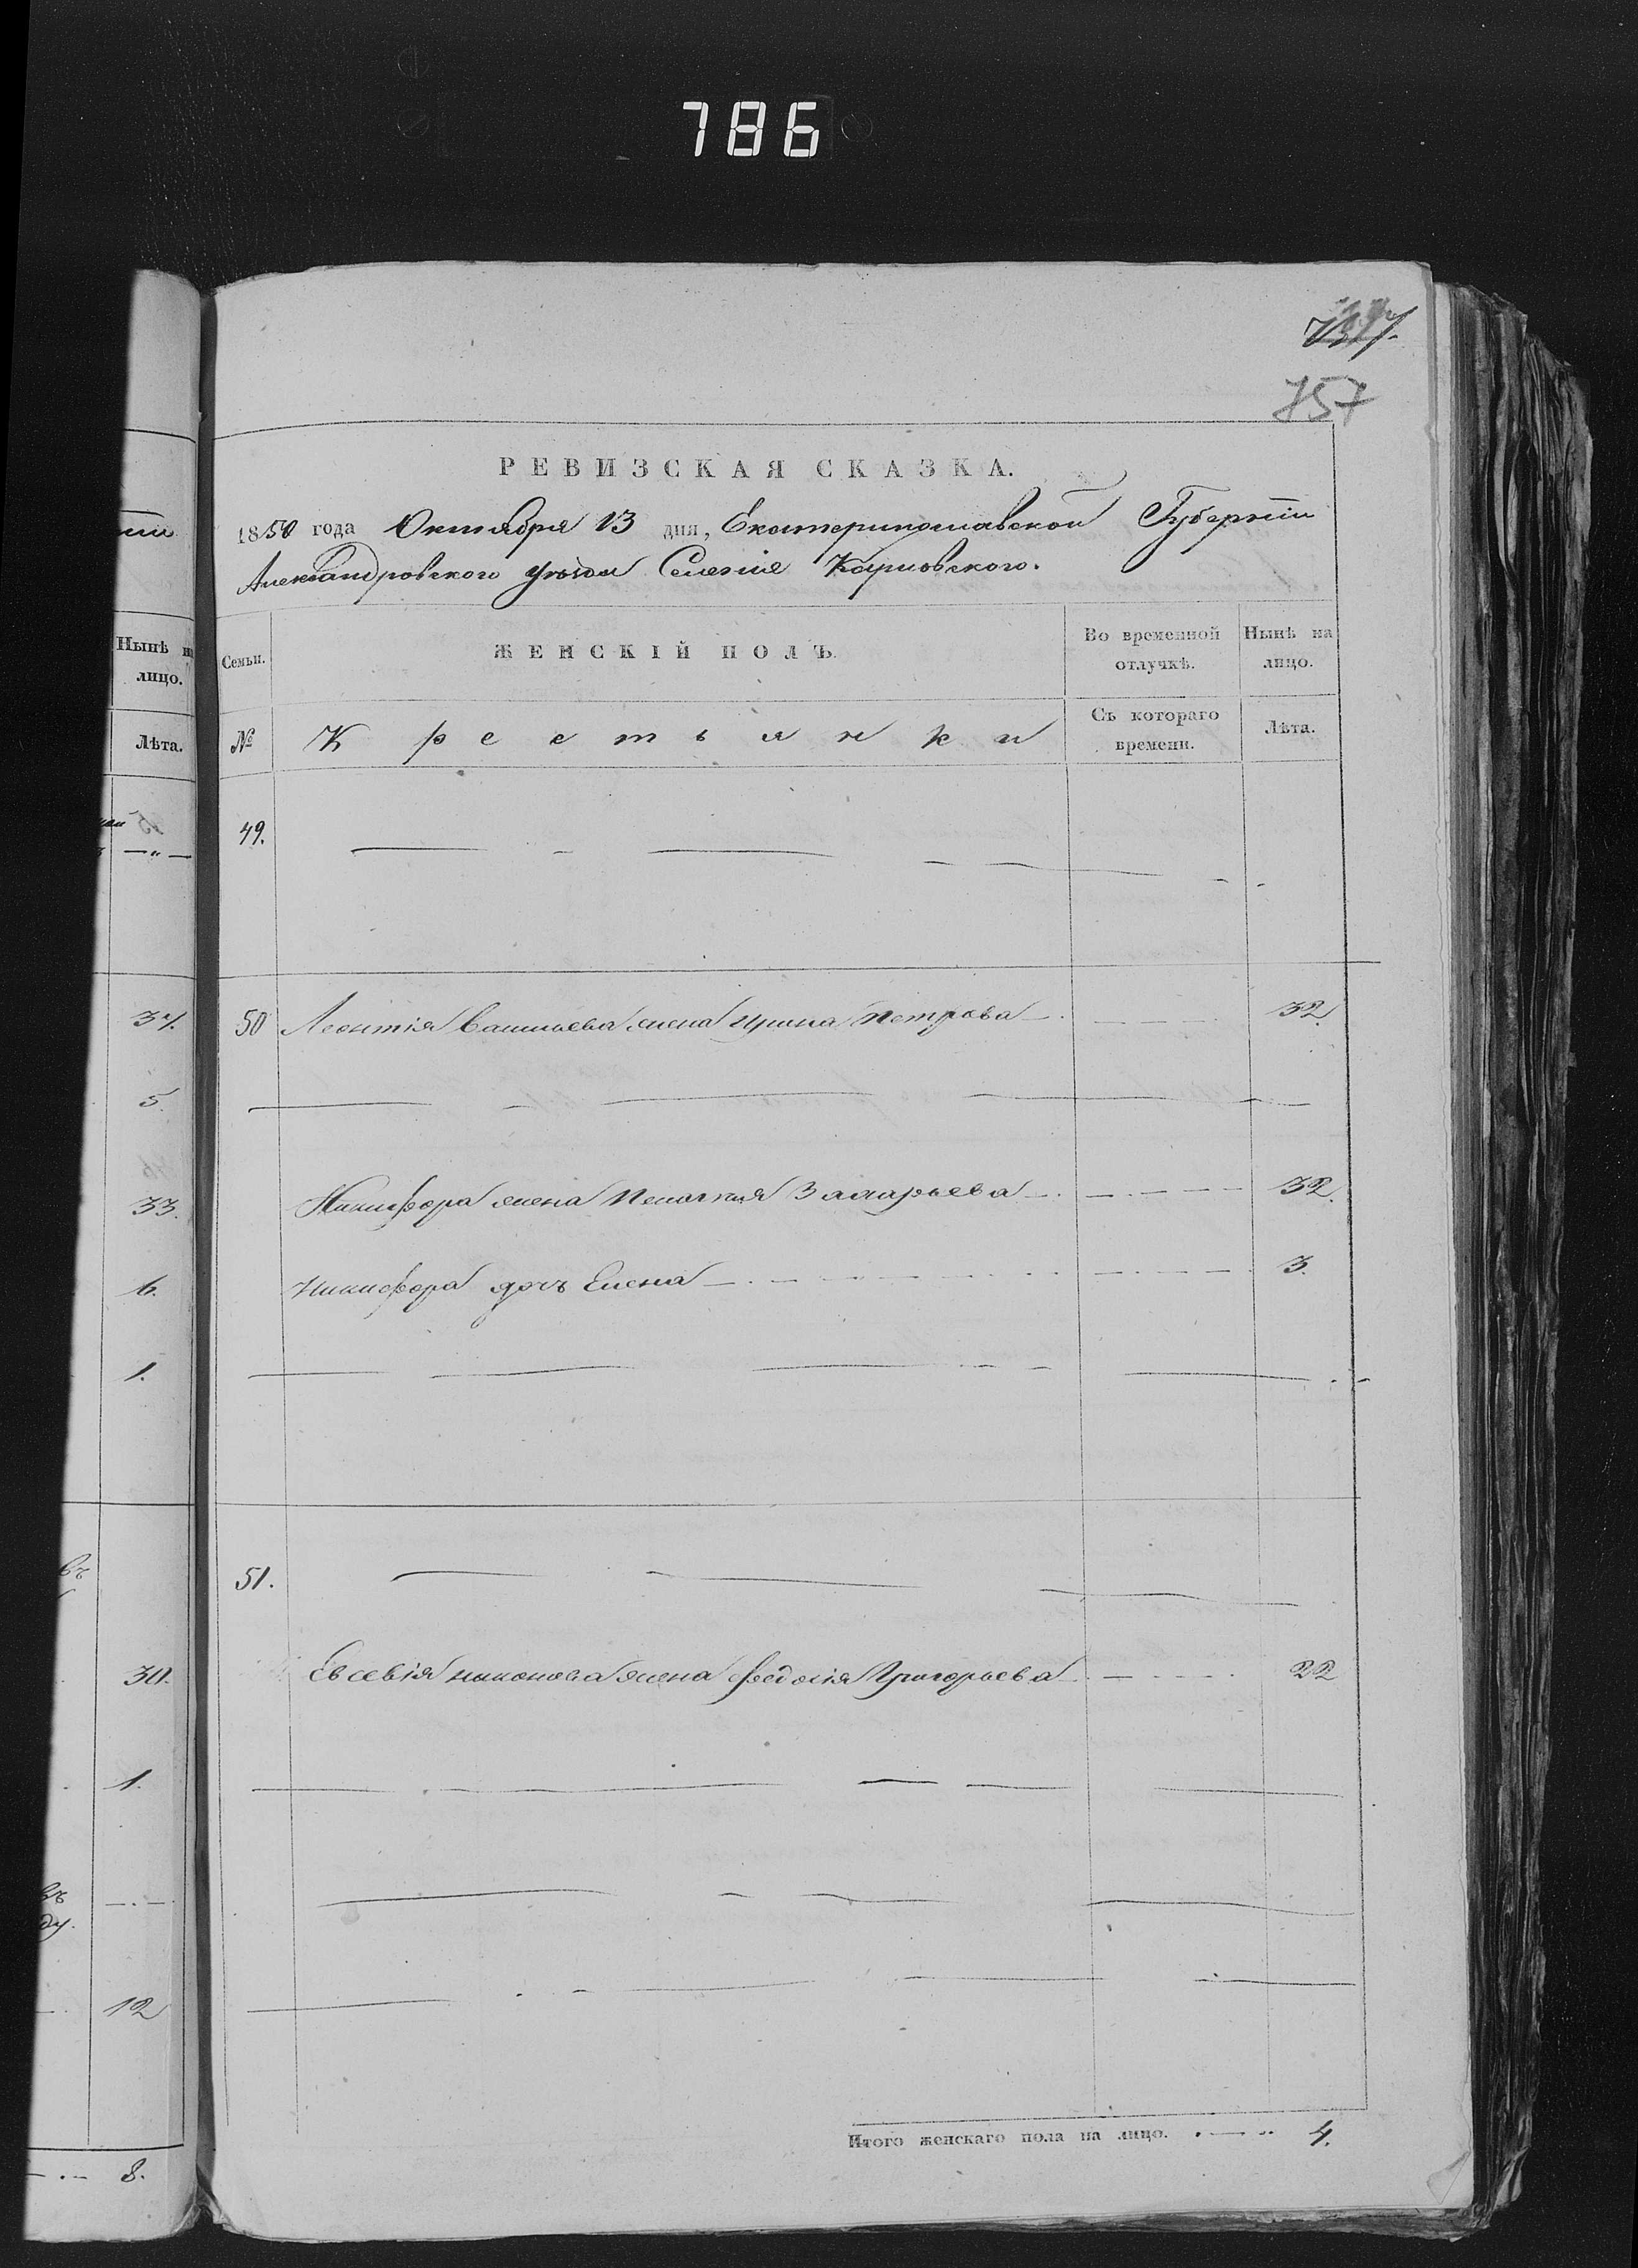 786
757
РЕВИЗСКАЯ СКАЗКА.
1850 года Октября 13 дня, Екатеринославской Губернии
Александровского уезда Селение
Нынѣ на лицо.
Семьи. ЖЕНСКІЙ ПОЛЪ. Во временной отлучкѣ. Нынѣ на лицо.
Лѣта.
№ Крестьянки Съ котораго времени. Лѣта.
49.
37.
50 Леонтія Васильева жена Ирина Петрова 32.
5.
33.
Никифора жена Пелагия Захарьева 32.
6.
Никифора дочь Елена 3.
1.
51.
30.
Евсевія Никонова жена Федосія Григорьева 22
1.
12
Итого женскаго пола на лицо. 4.
8.